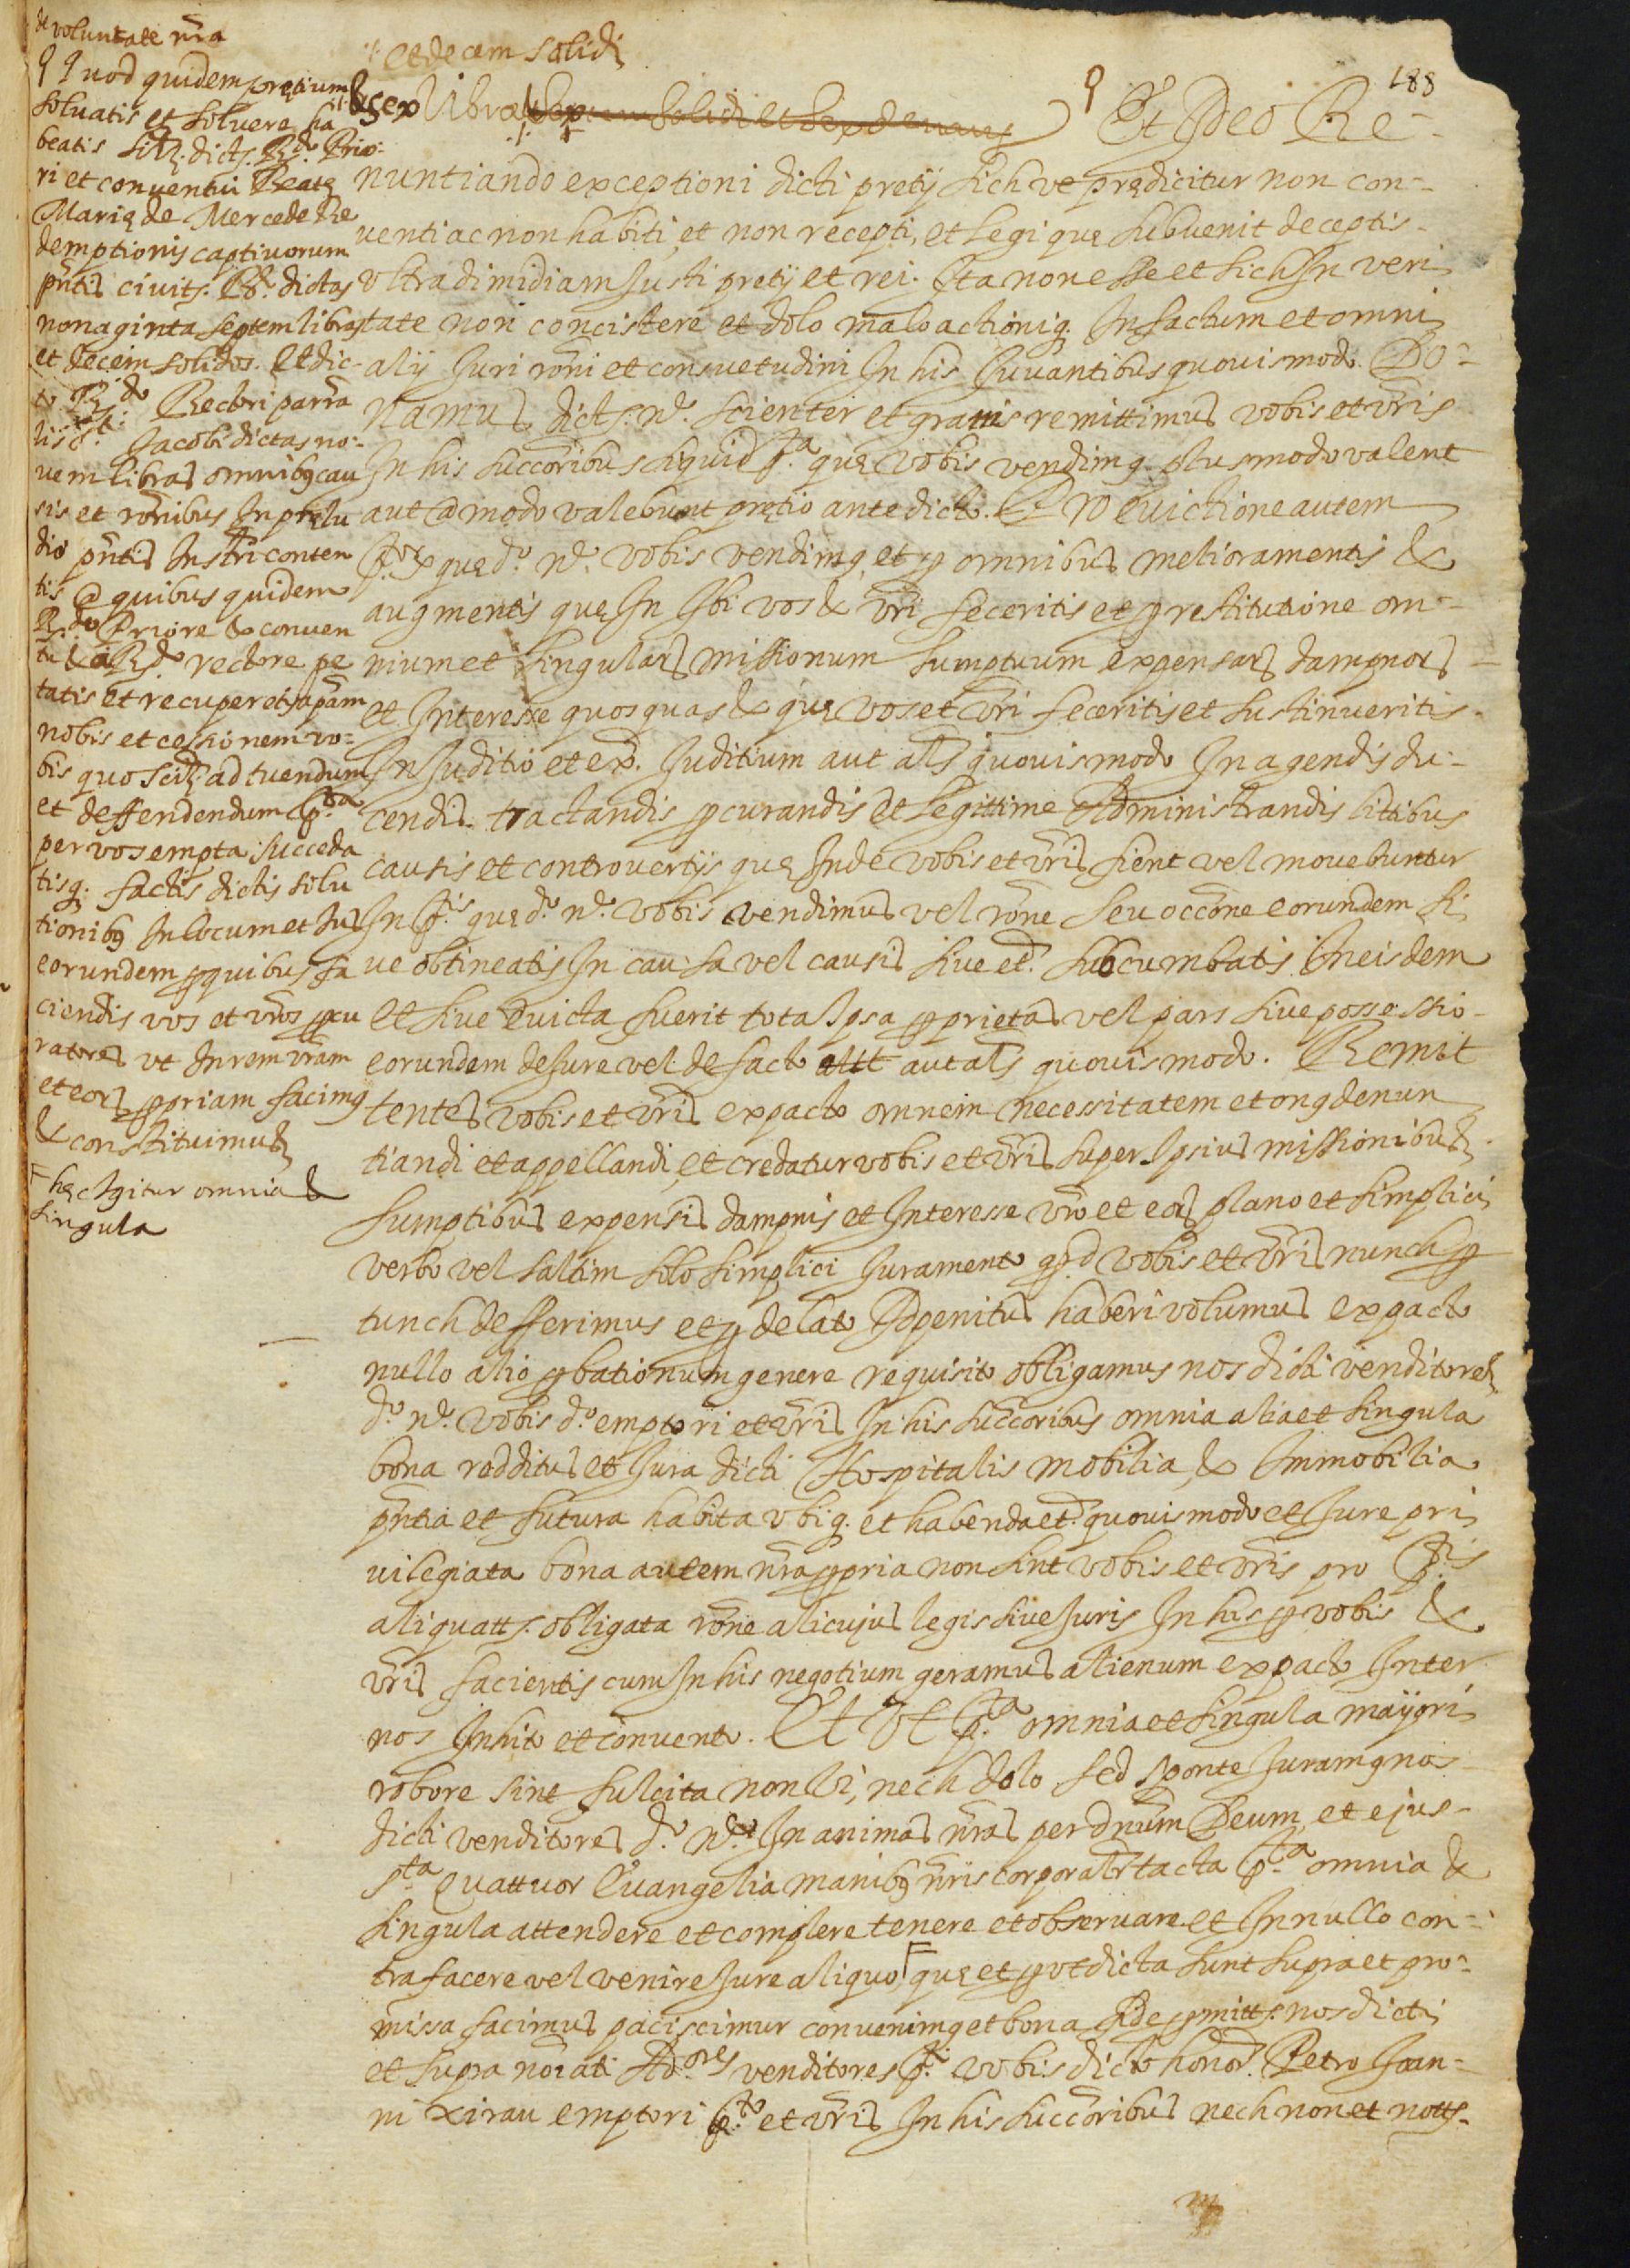 de voluntate nr̃a
Quod quidem pretium
soluatis et soluere ha
beatis sitz. dicts. Rdo. Prio:
ri et conuentui Beatę
Marię de Mercede Re
demptionis captiuorum
pñtis ciuits. Rõ. dictas
nonaginta septem libras
et decem solidos. Et dic-
to Rdo. Rectori parra
liis sti. Jacobi dictas no:-
uem libras omnibꝰ cau
sis et rõnibus In prelu
dio pñtis Instri conten
tis @ quibus quidem
Rdo. Priore & conuen
tu & a Rdo. rectore pe
tatis et recuperetis apãm
nobis et cessionem vo=
bis quo Scilt. ad tuendum
et deffendendum p.ta
per vos empta succeda
tisq. factis dictis solu
tionibꝰ In locum et Jus
eorundem pro quibus fa
ciendis vos et vr̃os procu
ratores vt In rem vr̃am
et eorꝫ propriam facimꝰ
& constituimus
F hęc Igitur omnia &
singula
188
et decem solidi
& sex libras septem solidi et sex denarys Et Ideo Re-
nuntiando exceptioni dicti pretij sich vt prędicitur non con-
uenti ac non habiti, et non recepti, et Legi quę subuenit deceptis-
vltra dimidiam Justi pretij et rei. Ita non esse et sich In veri
tate non concistere et dolo malo actioniq. In factum et omni
alij Juri rõni et consuetudini In his Juuantibus quouismodo. Do-
namus dicts. no. scienter et gratis remittimus vobis et vr̃is
In his succoribus siquid p.ta quę vobis vendimꝰ plus modo valent
aut @modo valebunt pretio antedicto. Pro euictione autem
p.tor quę do. no. vobis vendimꝰ, et pro omnibus melioramentis &
augmentis quę In Ibi vos & vr̃i feceritis et pro restitutione om-
nium et singularꝫ missionum sumptuum expensarꝫ dampnorꝫ
et Interesse quos quas & quę vos et vr̃i feceritis et sustinueritis-
In Juditio et ex.a Juditium aut als quouismodo In agendis du-
cendis tractandis procurandis et legittime Administrandis littibus
causis et controuertijs quę Inde vobis et vr̃is fient vel mouebuntur
In p.tis quę do. no. vobis vendimus vel rõne seu occõne eorundem si
ue obtineatis In causa vel causis siue et.a subcumbatis In eisdem
et siue Euicta fuerit tota Ipsa proprietas vel pars siue possessio-
eorundem de Jure vel de facto aut als quouismodo. Remit
tentes vobis et vr̃is expacto omnem necessitatem et onꝰ denun
tiandi et appellandi, et credatur vobis et vr̃is super Ipsius missionibus
sumptibus expensis dampnis et Interesse vr̃o et eorꝫ plano et simplici
verbo vel saltim solo simplici Juramento quod vobis et vr̃is nunch pro
tunch defferimus et pro delato Id penitus haberi volumus expacto
nullo alio probationum genere requisito obligamus nos dicti venditores
do. no. vobis do. emptori et vr̃is In his succoribus omnia alia et singula
bona redditus et Jura dicti Hospitalis mobilia & Immobilia
pñtia et futura habita vbiq. et habenda et.a quouismodo et Jure pri
uilegiata bona autem nr̃a propria non sint vobis et vr̃is pro p.tis
aliquatts. obligata rõne alicujus legis siue Juris In his pro vobis &
vr̃is facientis cum In his negotium geramus alienum expacto Inter
nos Inhito et conuento. Et Vt p.ta omnia et singula mayori
robore sint fulcita non Vi, nech dolo sed sponte Juramꝰ nos
dicti venditores do. no. In animas nr̃as per dnum Deum, et ejus-
sta Quattuor Euangelia manibꝰ nr̃is corporalr̃ tacta p.ta omnia &
singula attendere et complere tenere et obseruare et In nullo con-
trafacere vel venire Jure aliquo F quę et prout dicta sunt supra et pro-
missa facimus paciscimur conuenimꝰ et bona fide promitts. nos dicti
et supra noĩati Ad.ores venditores p.ti vobis dicto honor. Petro Joan-
ni Xirau emptori p.to et vr̃is In his succoribus nech non et notts.